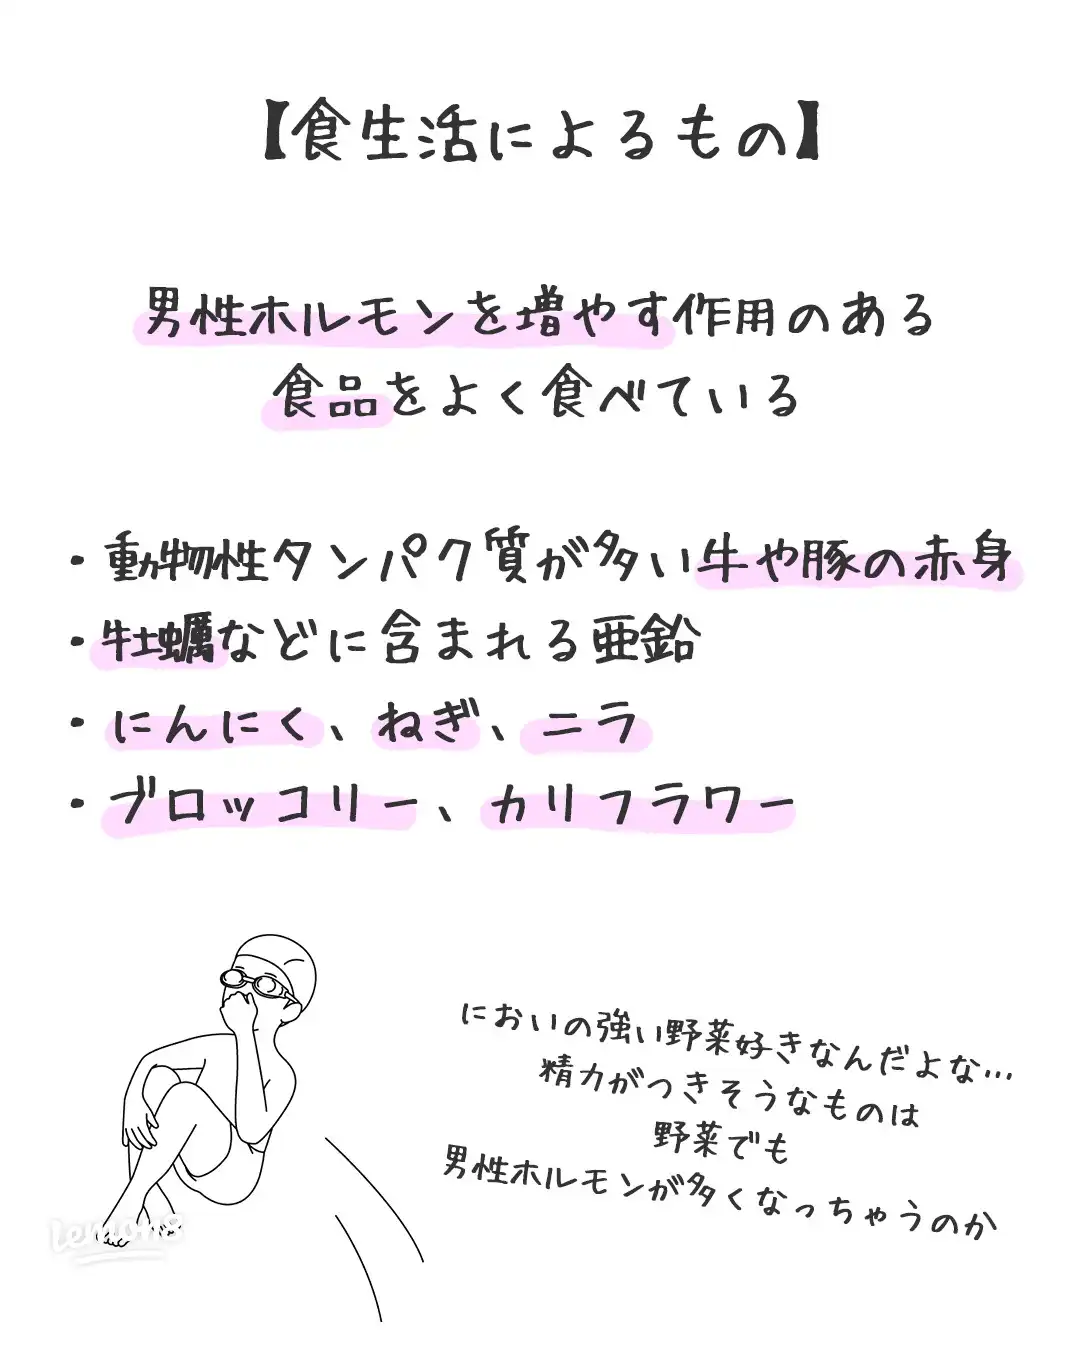 【食生活によるもの】
男性ホルモンを増やす作用のある
食品をよく食べている
・動物性タンパク質が多い牛や豚の赤身
・牡蠣などに含まれる亜鉛
・にんにく、ねぎ、ニラ
・ブロッコリー、カリフラワー
においの強い野菜好きなんだよな…
精力がつきそうなものは
野菜でも
男性ホルモンが多くなっちゃうのか
lemon8